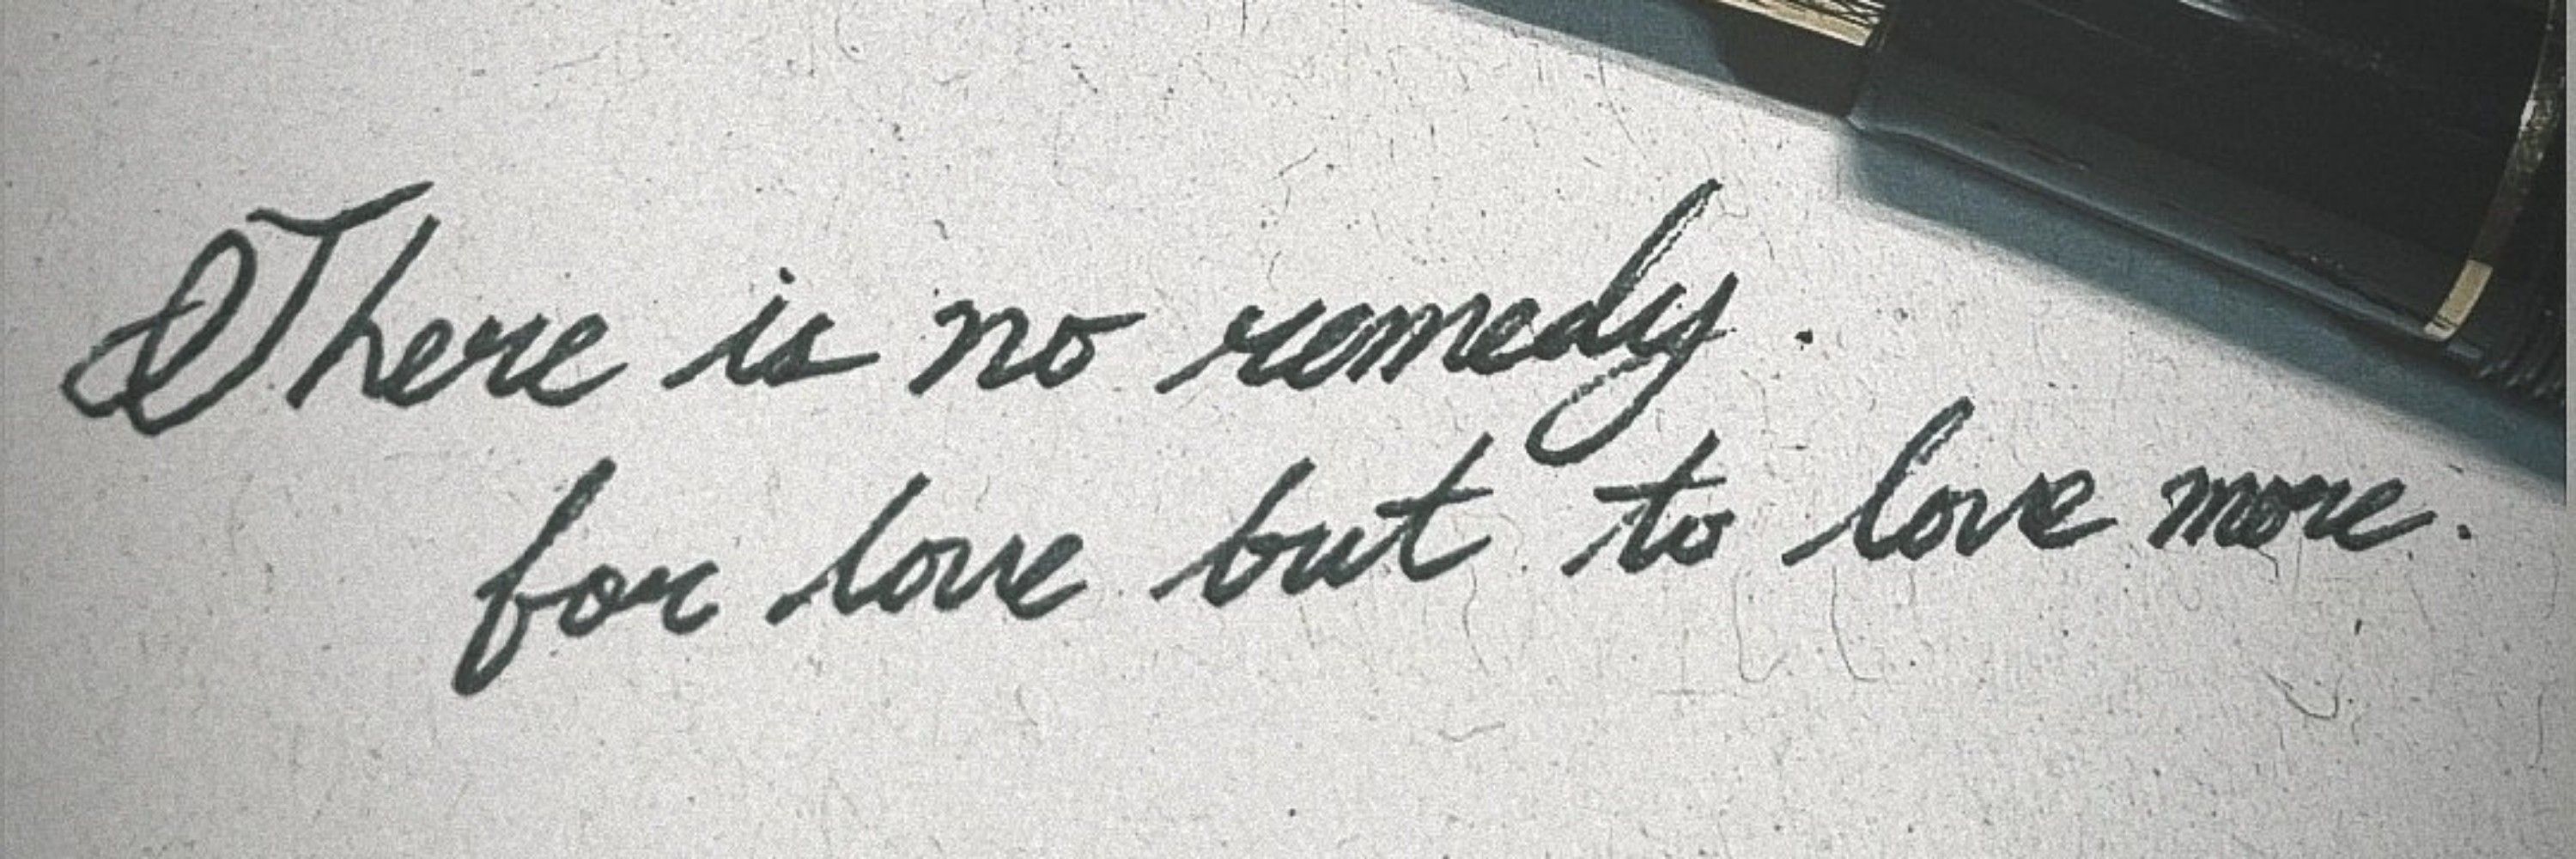 There is no remedy.
for love but to love more.